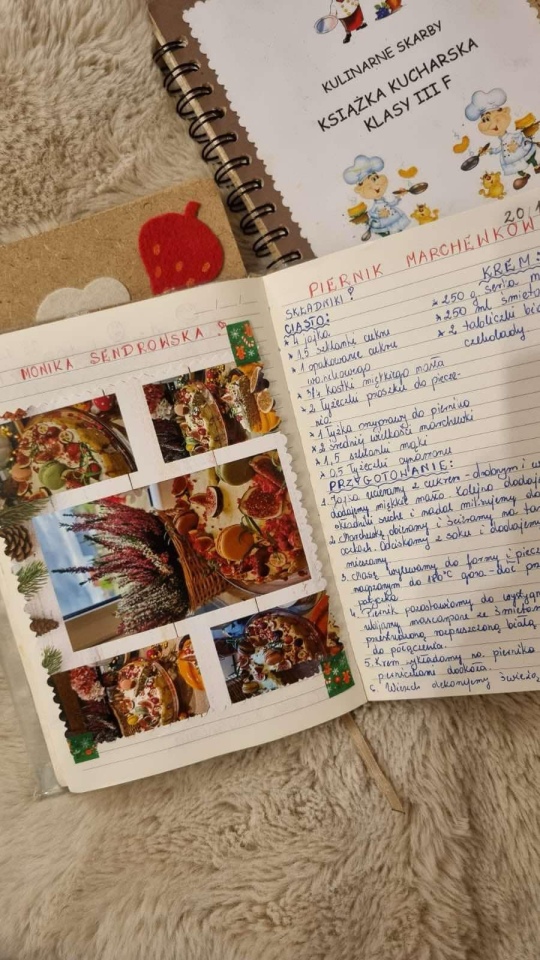 KULINARNE SKARBY
KSIĄŻKA KUCHARSKA
KLASY III F
MONIKA SENDROWSKA
20
PIERNIK MARCHEWKOW
SKŁADNIKI:
CIASTO:
* 4 jajka
* 1,5 szklanki cukru
* 1 opakowanie cukru
waniliowego
* 3/4 kostki miękkiego masła
* 2 łyżeczki proszku do piecze-
nia
* 1 łyżka przyprawy do piernika
* 2 średniej wielkości marchewki
* 1,5 szklanki mąki
* 0,5 łyżeczki cynamonu
KREM:
* 250 g serka m
* 250 ml śmieta
* 2 tabliczki bia
czekolady
PRZYGOTOWANIE:
1. Jajka ucieramy z cukrem
dodajemy miękkie masło. Kolejno dodaj
składniki suche i nadal miksujemy
2. Marchewkę obieramy i ścieramy na ta
oczkach. Odciskamy z soku i dodajemy
mieszamy
3. Masę wylewamy do formy i piecz
nagrzanym do 180°C góra-dół prz
4. Piernik pozostawiamy do
ubijamy mascarpone ze śmietan
rozpuszczoną białą
do połączenia.
5. Krem wykładamy na piernika
dookoła.
6. Wierzch dekorujemy świeżą